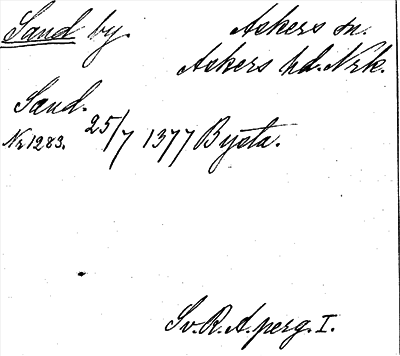 Sand by. Askers sn.
Askers hd. Nrk.
Sand.
Nr 1283. 25/7 1377 Bysta.
Sv. R. A. perg. I.